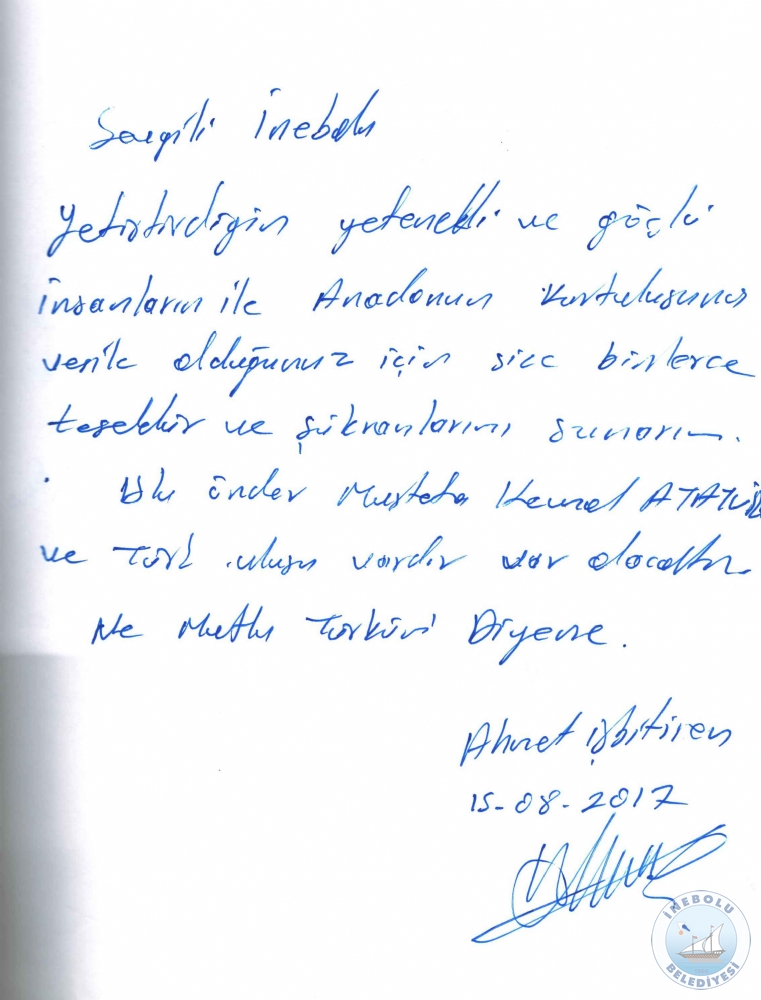 Sevgili İnebolu
Yetiştirdiğin yetenekli ve güçlü
insanların ile Anadonun kurtuluşuna
vesile olduğunuz için size binlerce
teşekkür ve şükranlarımı sunarım.
Ulu önder Mustafa Kemal ATATÜRK
ve Türk ulusu vardır var olacaktır.
Ne Mutlu Türküm Diyene.
Ahmet İşbitiren
15-08-2017
İNEBOLU
BELEDİYESİ